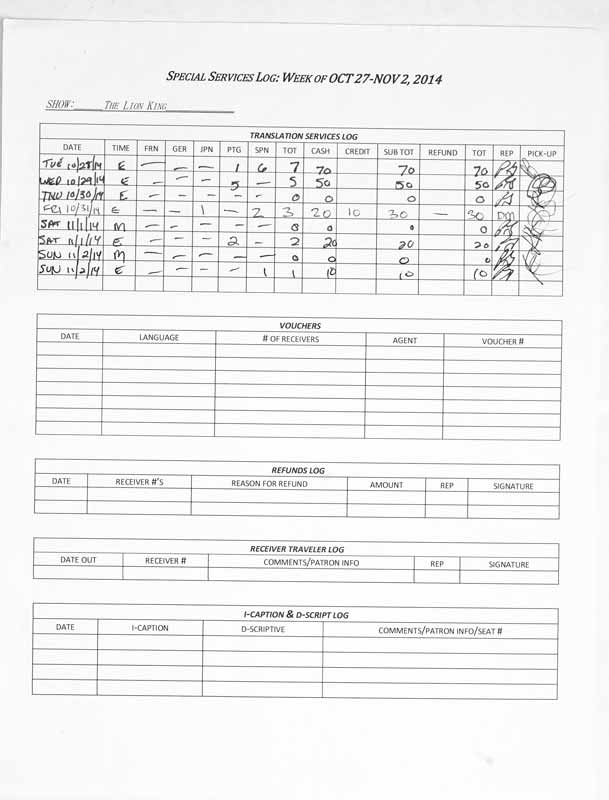 SPECIAL SERVICES LOG: WEEK OF OCT 27-NOV 2, 2014
SHOW: THE LION KING
TRANSLATION SERVICES LOG
DATE TIME FRN GER JPN PTG SPN TOT CASH CREDIT SUB TOT REFUND TOT REP PICK-UP
TUE 10/28/14 E — — — 1 6 7 70 70 70
WED 10/29/14 E — — — 5 — 5 50 50 50
THU 10/30/14 E — — — — — 0 0 0 0
FRI 10/31/14 E — — 1 — 2 3 20 10 30 — 30 DM
SAT 11/1/14 M — — — — — 0 0 0 0
SAT 11/1/14 E — — — 2 — 2 20 20 20
SUN 11/2/14 M — — — — — 0 0 0 0
SUN 11/2/14 E — — — — 1 1 10 10 10
VOUCHERS
DATE LANGUAGE # OF RECEIVERS AGENT VOUCHER #
REFUNDS LOG
DATE RECEIVER #'S REASON FOR REFUND AMOUNT REP SIGNATURE
RECEIVER TRAVELER LOG
DATE OUT RECEIVER # COMMENTS/PATRON INFO REP SIGNATURE
I-CAPTION & D-SCRIPT LOG
DATE I-CAPTION D-SCRIPTIVE COMMENTS/PATRON INFO/SEAT #